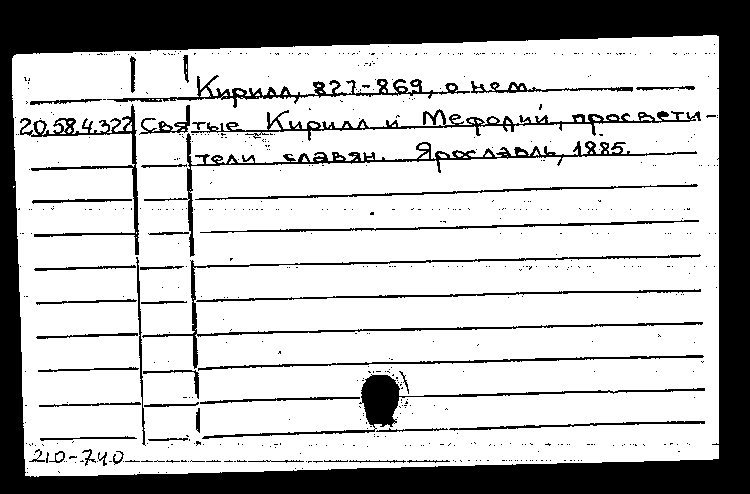 Кирилл, 827-869, о нем.
20.58.4.322 Святые Кирилл и Мефодий, просвети-
тели славян. Ярославль, 1885.
210-740